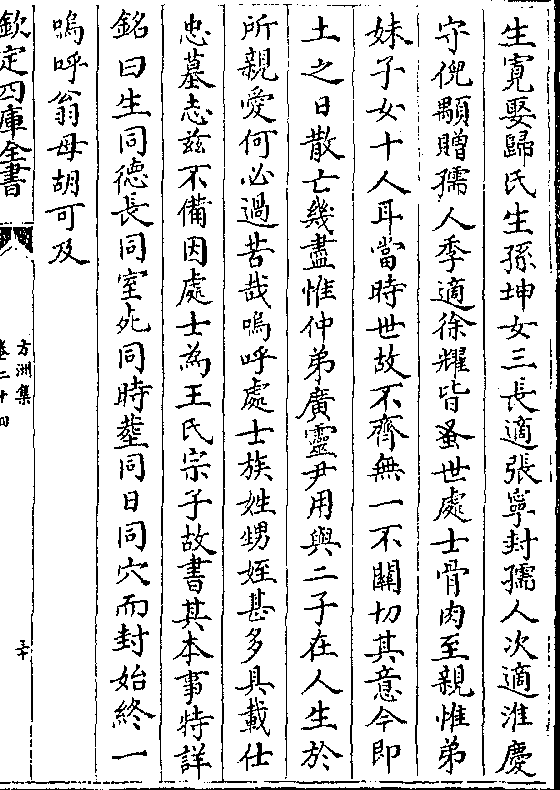 生寛娶歸氏生孫坤女三長適張寧封孺人次適淮慶
守倪顒贈孺人季適徐耀皆蚤世處士骨肉至親惟弟
妹子女十人耳當時世故不齊無一不關切其意今即
土之日散亡幾盡惟仲弟廣靈尹用與二子在人生於
所親愛何必過苦哉嗚呼處士族姓甥姪甚多具載仕
忠墓志兹不備因處士為王氏宗子故書其本事特詳
銘曰生同德長同室死同時塟同日同穴而封始終一
嗚呼翁母胡可及
欽定四庫全書
方洲集
卷二十四
三十